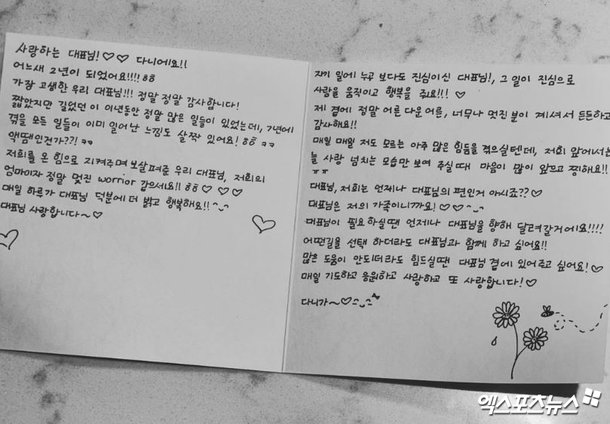 사랑하는 대표님!♡♡ 다니에요!!
어느새 2년이 되었어요!!!! ㅠㅠ
가장 고생한 우리 대표님!!! 정말 정말 감사합니다!
짧았지만 길었던 이 이년동안 정말 많은 일들이 있었는데, 7년에
겪을 모든 일들이 이미 일어난 느낌도 살짝 있어요! ㅠㅠ ㅋㅋ
액땜인건가??! ㅋㅋ
저희를 온 힘으로 지켜주며 보살펴준 우리 대표님, 저희의
엄마이자 정말 멋진 worrior 같으세요!! ㅠㅠ♡♡♡
매일 하루가 대표님 덕분에 더 밝고 행복해요!!
대표님 사랑합니다~♡
자기 일에 누구 보다도 진심이신 대표님!, 그 일이 진심으로
사람을 움직이고 행복을 줘요!!!♡
제 곁에 정말 어른 다운 어른, 너무나 멋진 분이 계셔서 든든하고
감사해요!!
매일 매일 저도 모르는 아주 많은 힘듦을 겪으실텐데, 저희 앞에서는
늘 사랑 넘치는 모습만 보여 주실 때 마음이 많이 아프고 찡해요!!
대표님, 저희는 언제나 대표님의 편인거 아시죠??♡
대표님은 저의 가족이니까요!♡♡
대표님이 필요하실땐 언제나 대표님을 향해 달려갈거에요!!!!
어떤길을 선택 하더라도 대표님과 함께 하고 싶어요!!
많은 도움이 안되더라도 힘드실땐 대표님 곁에 있어주고 싶어요!♡
매일 기도하고 응원하고 사랑하고 또 사랑합니다!♡
다니가~♡
엑스포츠뉴스